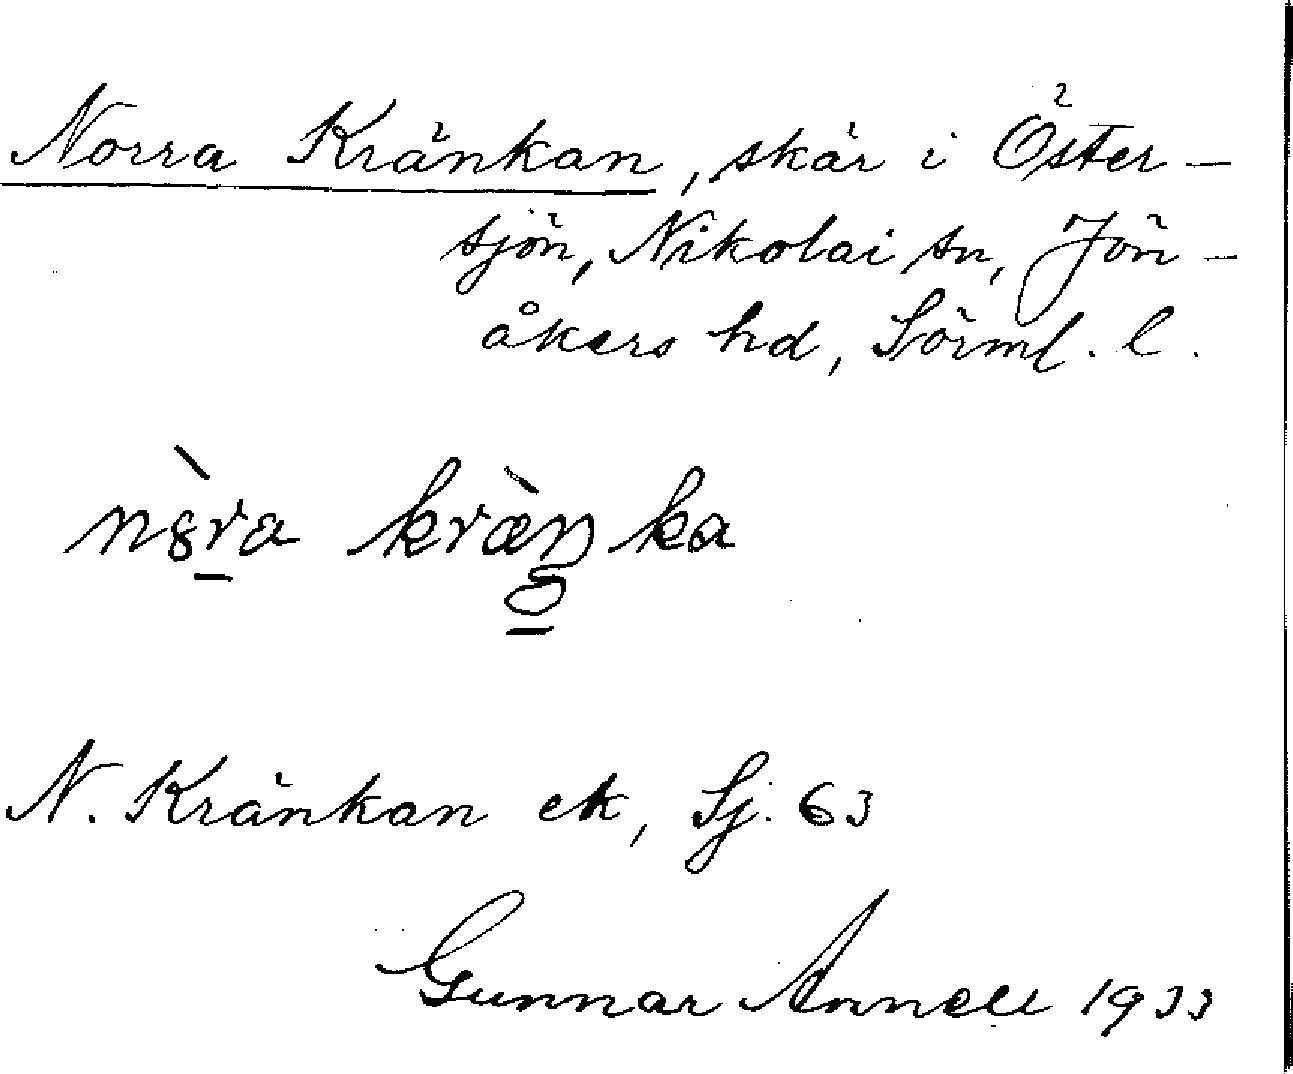 Norra Kränkan, skär i Öster-
sjön, Nikolai sn, Jön-
åkers hd, Sörml. l.
n8̀r̠a kræ̀ŋ̠ka
N. Kränkan ek, Sj. 63
Gunnar Annell 1933